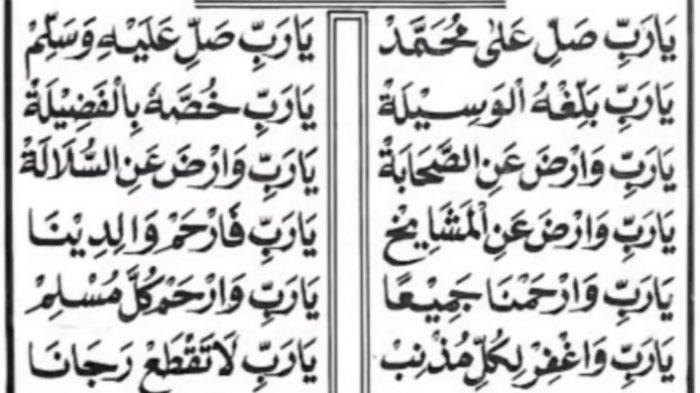 يَارَبِّ صَلِّ عَلٰى مُحَمَّدْ يَارَبِّ صَلِّ عَلَيْهِ وَسَلِّمْ
يَارَبِّ بَلِّغْهُ الْوَسِيْلَةْ يَارَبِّ خُصَّهُ بِالْفَضِيْلَةْ
يَارَبِّ وَارْضَ عَنِ الصَّحَابَةْ يَارَبِّ وَارْضَ عَنِ السُّلَالَةْ
يَارَبِّ وَارْضَ عَنِ الْمَشَايِخْ يَارَبِّ فَارْحَمْ وَالِدِيْنَا
يَارَبِّ وَارْحَمْنَا جَمِيْعًا يَارَبِّ وَارْحَمْ كُلَّ مُسْلِمْ
يَارَبِّ وَاغْفِرْ لِكُلِّ مُذْنِبْ يَارَبِّ لَاتَقْطَعْ رَجَانَا